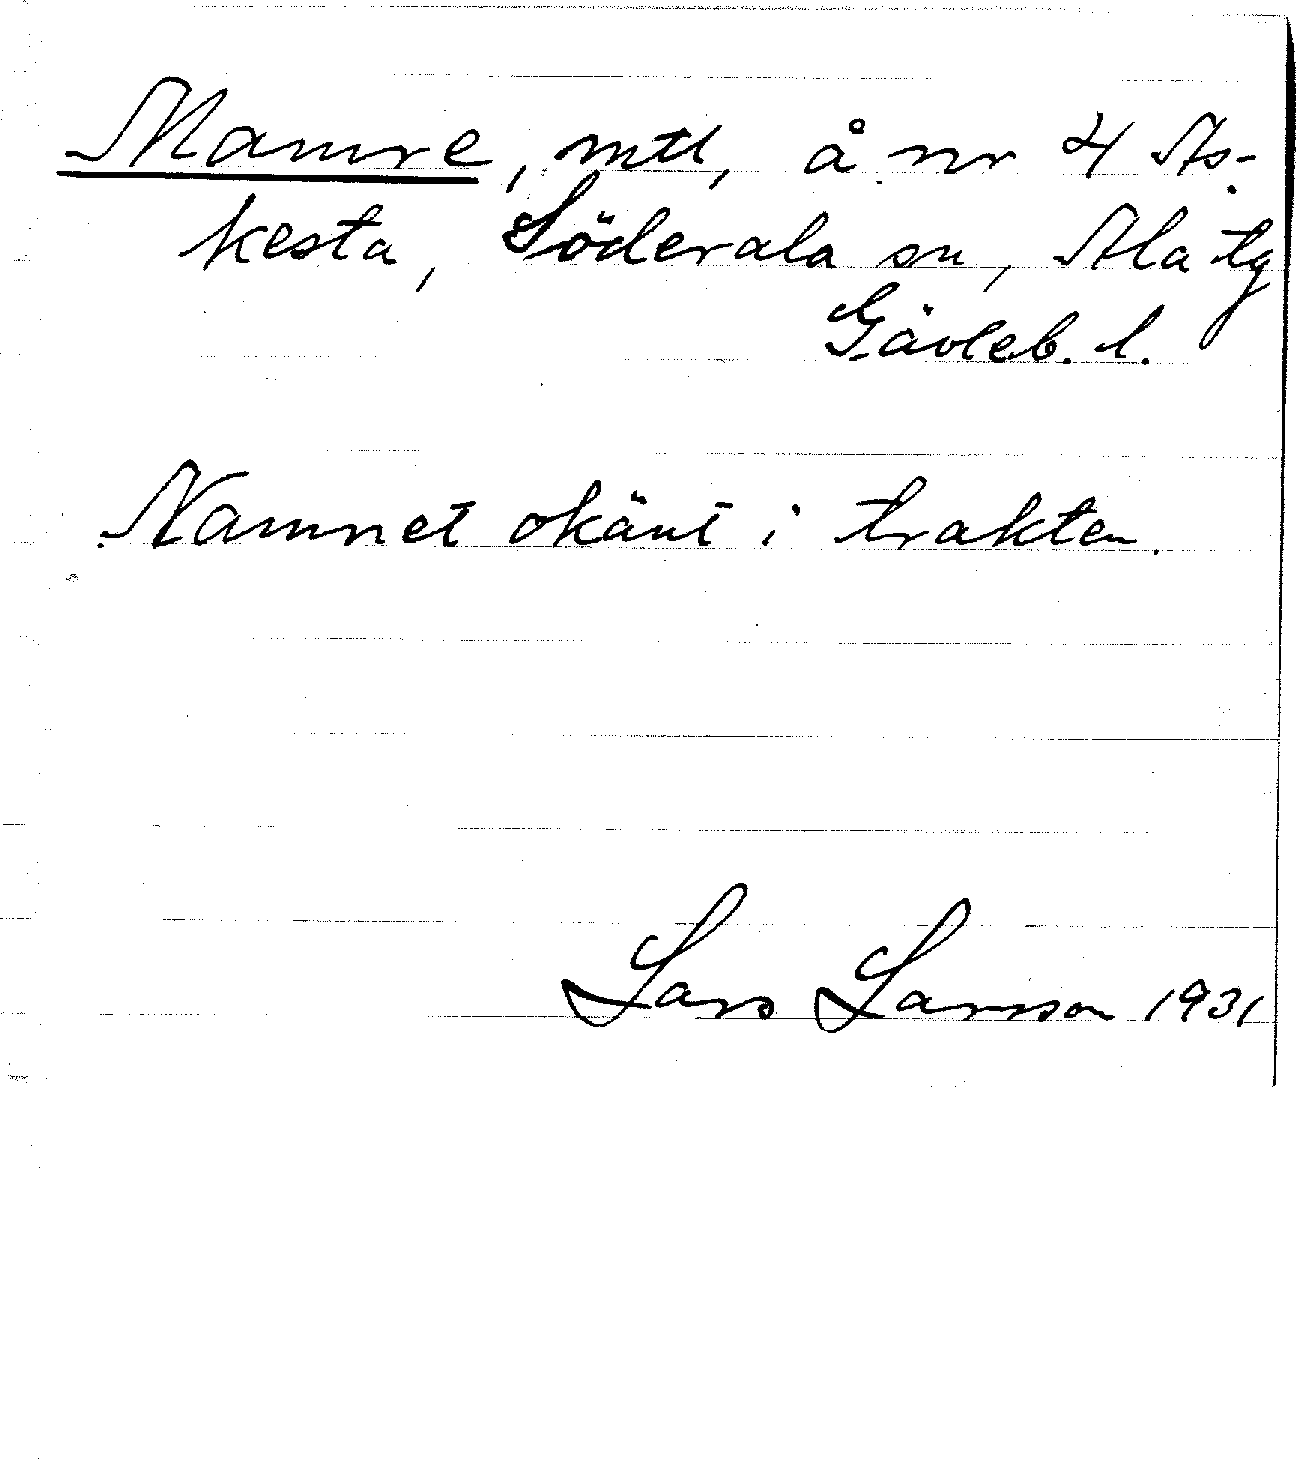 Mamre, mtl, å nr 4 As-
kesta, Söderala sn, Ala tg
Gävleb. l.
Namnet okänt i trakten.
Lars Larsson 1931